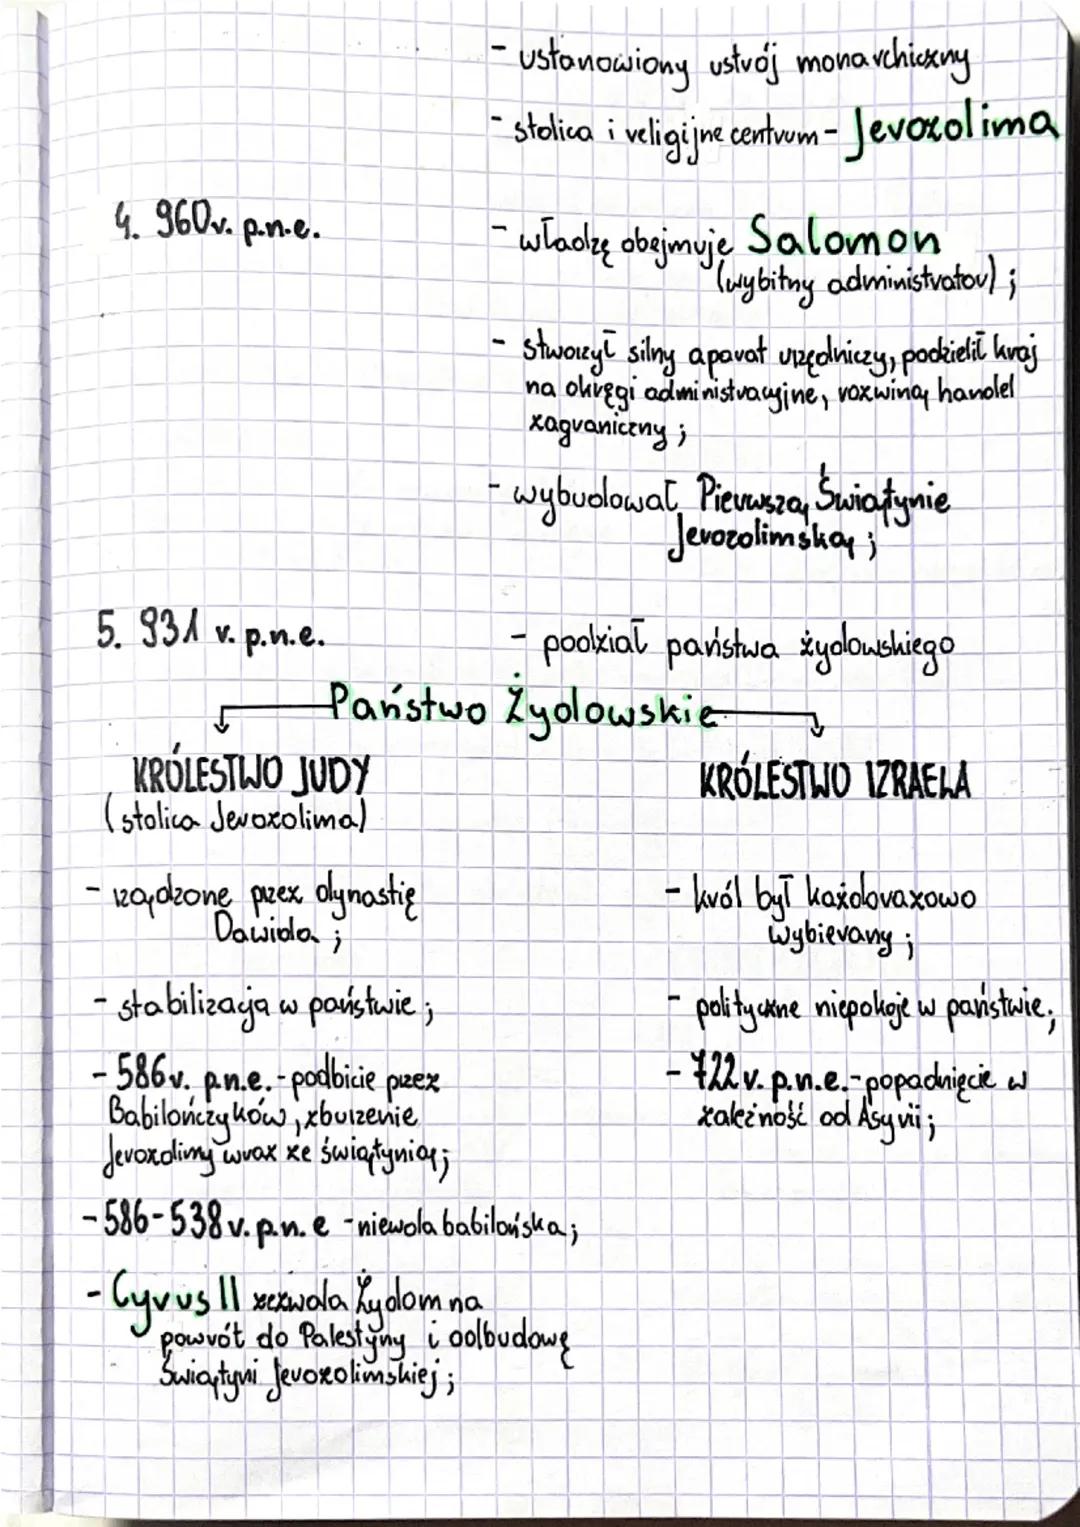 - ustanowiony ustrój monarchiczny
- stolica i religijne centrum - Jerozolima
4. 960r. p.n.e.
- władzę obejmuje Salomon
(wybitny administrator) ;
- stworzył silny aparat urzędniczy, podzielił kraj
na okręgi administracyjne, rozwiną handel
zagraniczny ;
- wybudował Pierwszą Świątynie
Jerozolimską ;
5. 931 r. p.n.e.
- podział państwa żydowskiego
Państwo Żydowskie
KRÓLESTWO JUDY
(stolica Jerozolima)
- rządzone przez dynastię
Dawida ;
- stabilizacja w państwie ;
- 586r. p.n.e. - podbicie przez
Babilończyków, zburzenie
Jerozolimy wraz ze świątynią ;
- 586-538r. p.n.e - niewola babilońska ;
- Cyrus II zezwala Żydom na
powrót do Palestyny i odbudowę
Świątyni Jerozolimskiej ;
KRÓLESTWO IZRAELA
- król był każdorazowo
wybierany ;
- polityczne niepokoje w państwie ;
- 722 r. p.n.e. - popadnięcie w
zależność od Asyrii ;